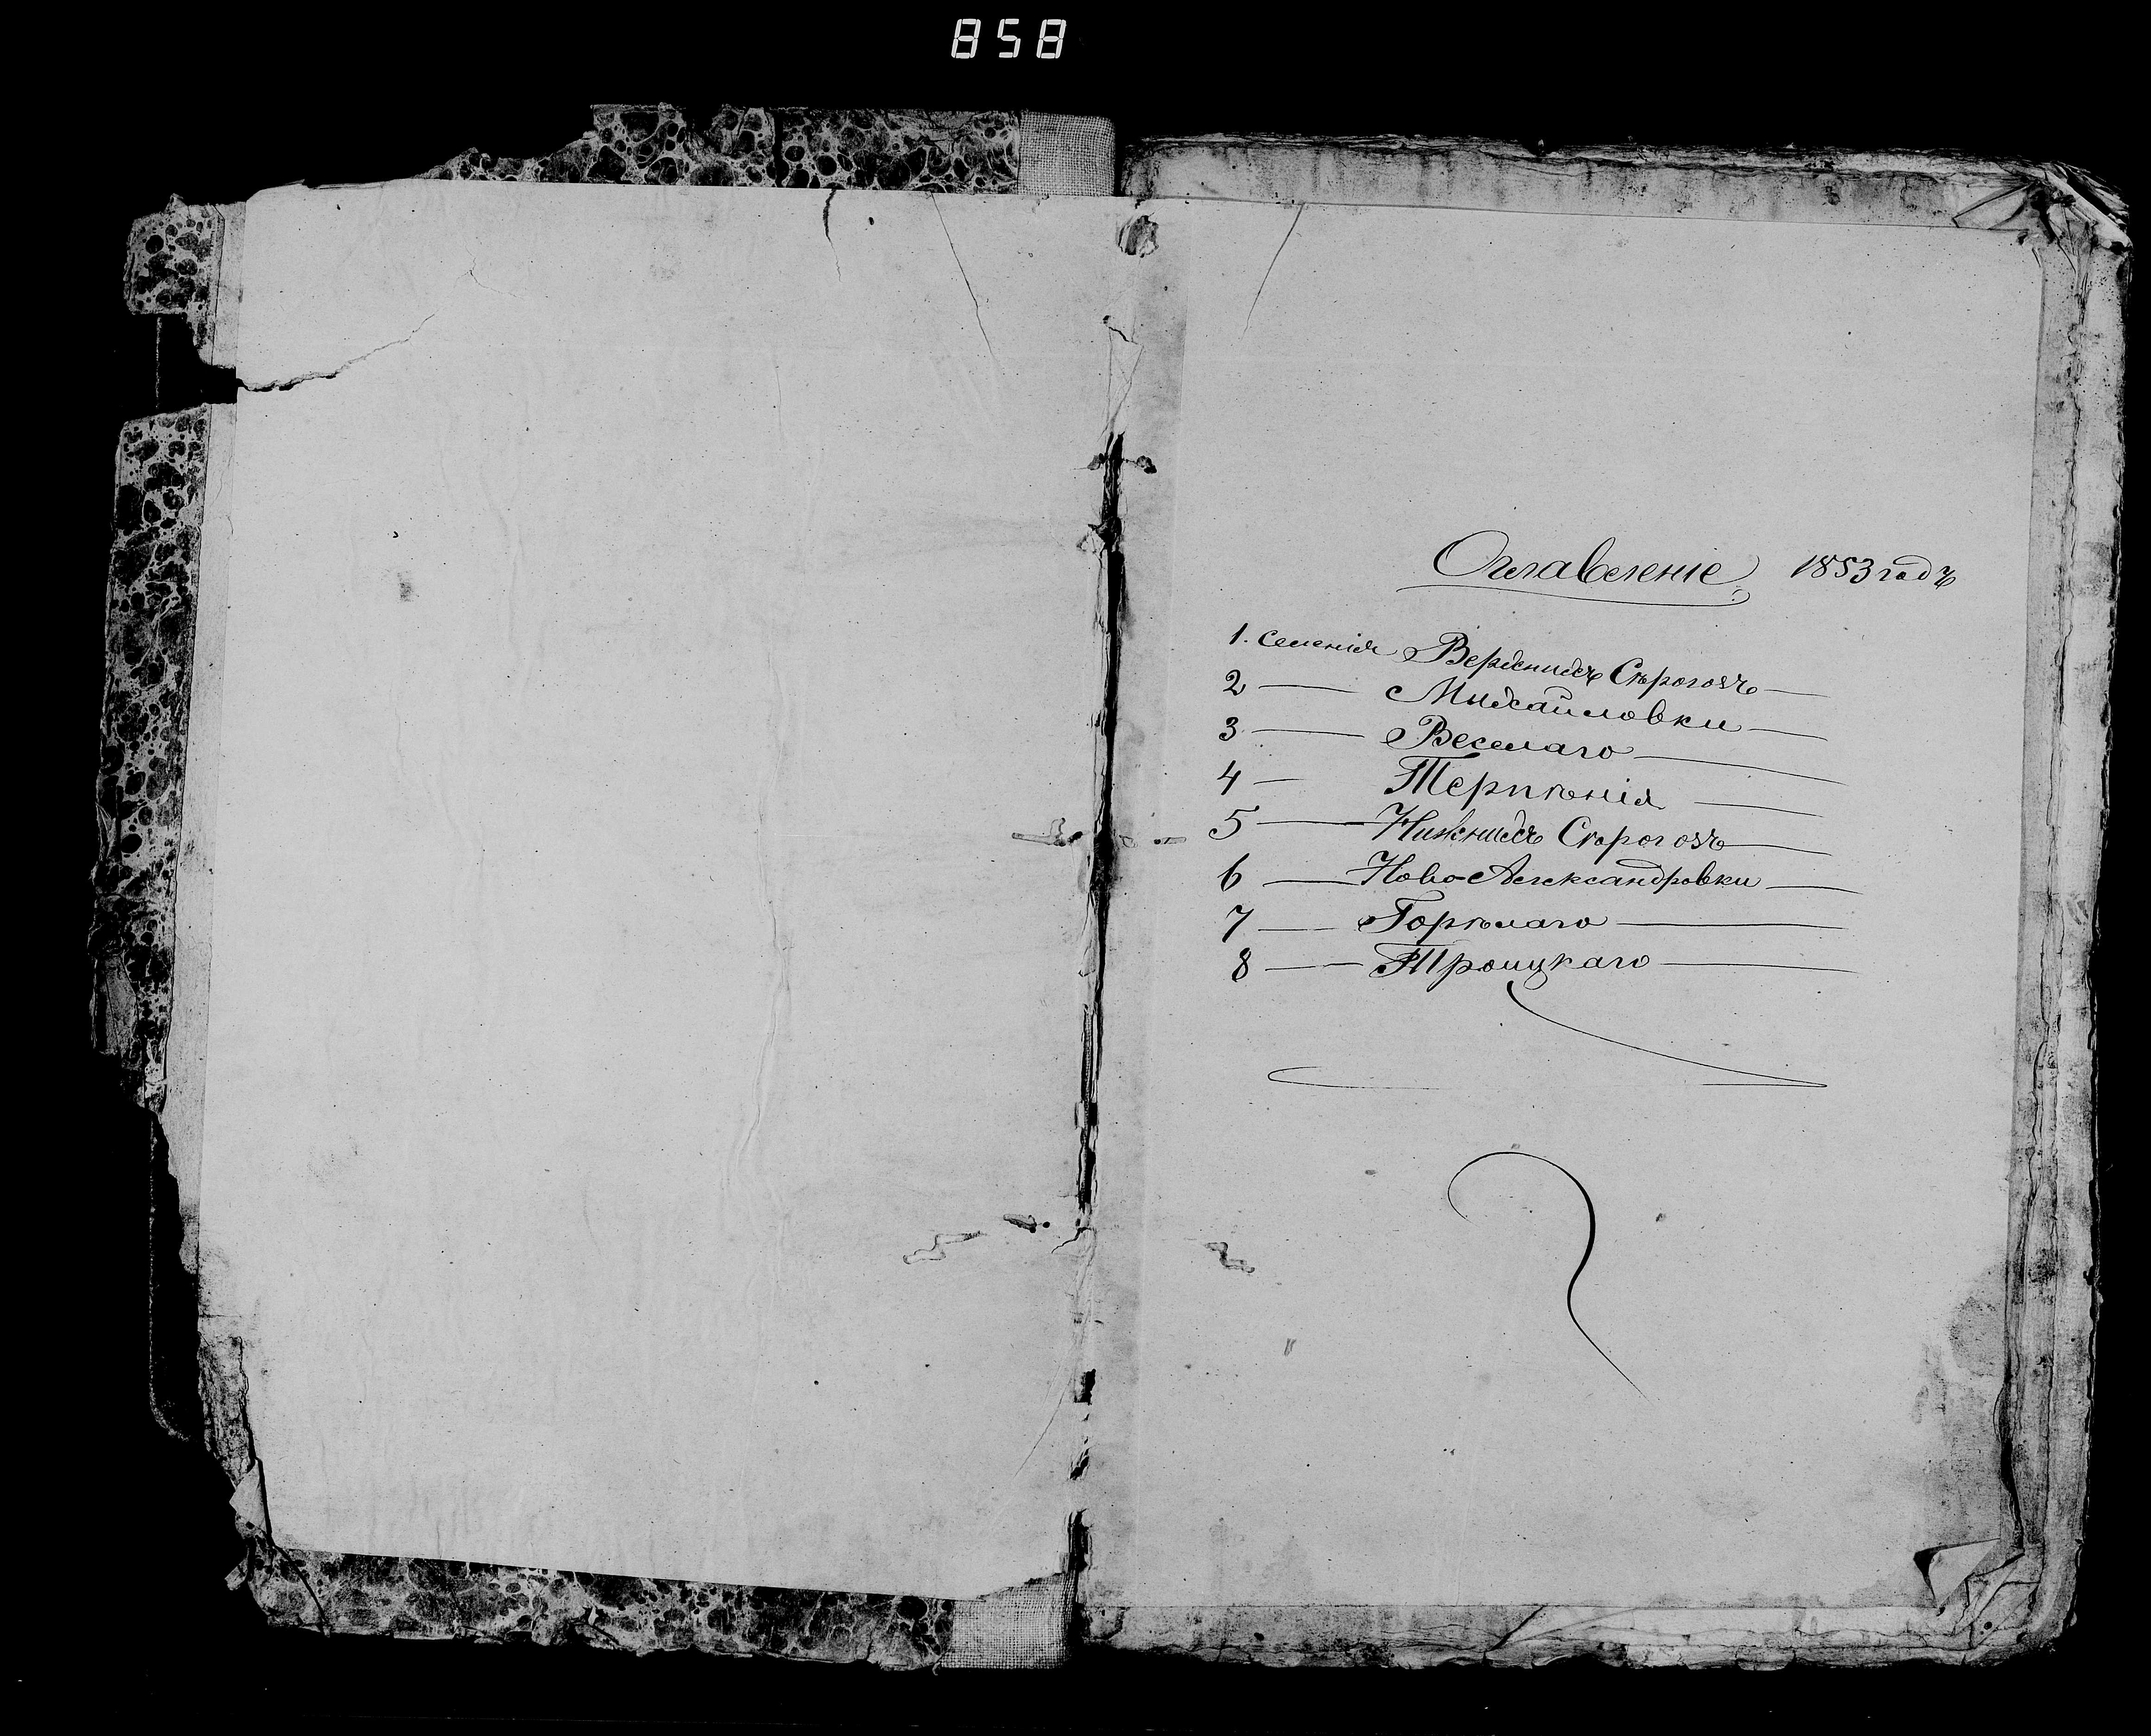 858
Оглавленіе 1853 годъ
1. Селенія Верхнихъ Сѣрогозъ —
2 — Михайловки —
3 — Веселаго —
4 — Терпѣнія —
5 — Нижнихъ Сѣрогозъ —
6 — Ново-Александровки —
7 — Горѣлаго —
8 — Троицкаго —